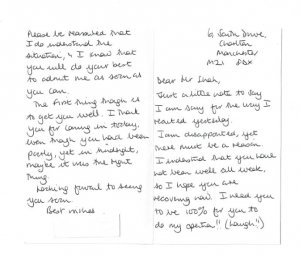 6 South Drive,
Chorlton
Manchester
M21 8DX
Dear Mr Shah,
Just a little note to say
I am sorry for the way I
reacted yesterday.
I am disappointed, yet
there must be a reason.
I understand that you have
not been well all week,
so I hope you are
recovering now. I need you
to be 100% for you to
do my operation" (Laugh!)
Please be reassured that
I do understand the
situation, & I know that
you will do your best
to admit me as soon as
you can.
The first thing though is
to get you well. I thank
you for coming in today,
even though you had been
poorly, yet in hindsight,
maybe it was the right
thing.
Looking forward to seeing
you soon.
Best wishes